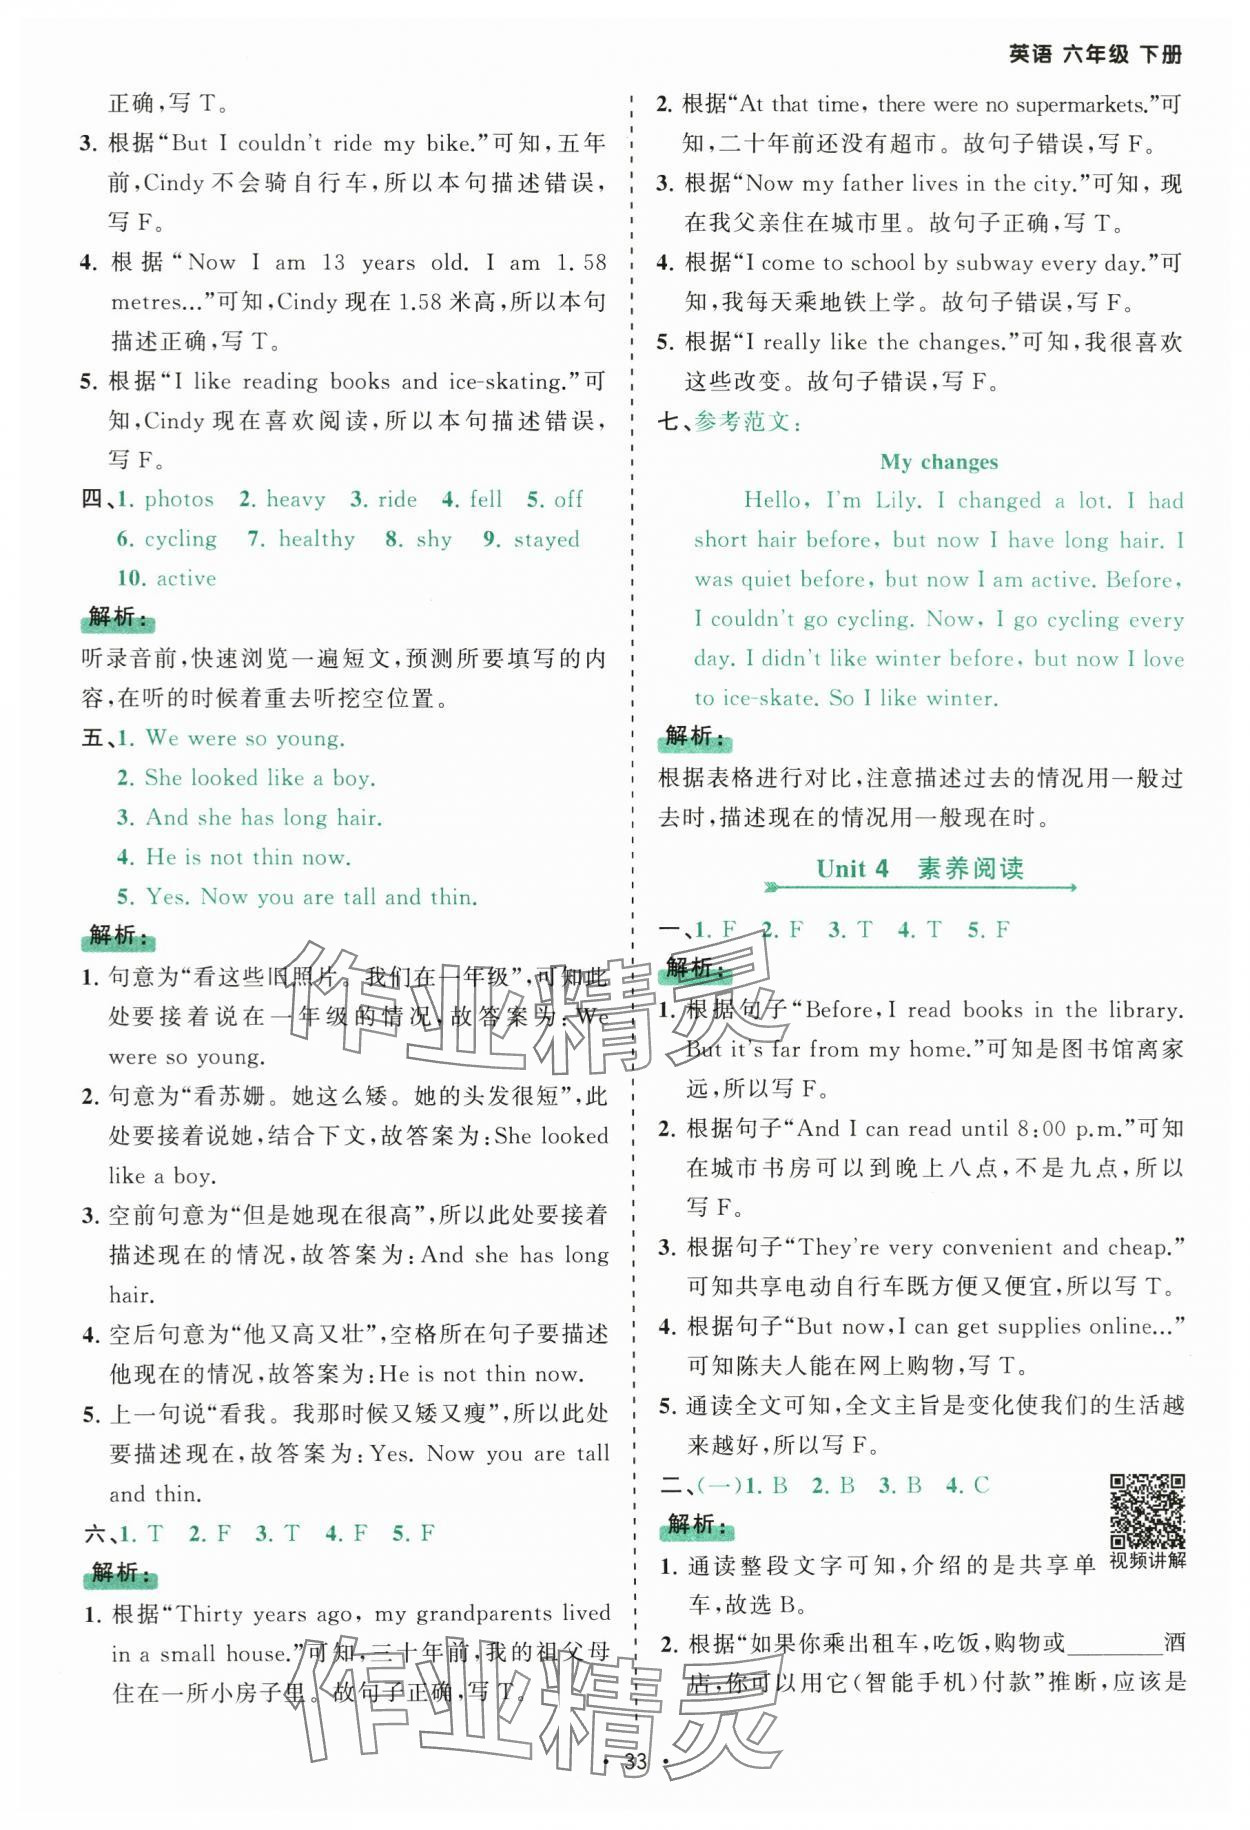 英语 六年级 下册
正确,写 T。
3. 根据“But I couldn't ride my bike.”可知,五年
前,Cindy 不会骑自行车,所以本句描述错误,
写 F。
4. 根据“Now I am 13 years old. I am 1.58
metres…”可知,Cindy 现在 1.58 米高,所以本句
描述正确,写 T。
5. 根据“I like reading books and ice-skating.”可
知,Cindy 现在喜欢阅读,所以本句描述错误,
写 F。
四、1. photos 2. heavy 3. ride 4. fell 5. off
6. cycling 7. healthy 8. shy 9. stayed
10. active
解析:
听录音前,快速浏览一遍短文,预测所要填写的内
容,在听的时候着重去听挖空位置。
五、1. We were so young.
2. She looked like a boy.
3. And she has long hair.
4. He is not thin now.
5. Yes. Now you are tall and thin.
解析:
1. 句意为“看这些旧照片。我们在一年级”,可知此
处要接着说在一年级的情况,故答案为:We
were so young.
2. 句意为“看苏姗。她这么矮。她的头发很短”,此
处要接着说她,结合下文,故答案为:She looked
like a boy.
3. 空前句意为“但是她现在很高”,所以此处要接着
描述现在的情况,故答案为:And she has long
hair.
4. 空后句意为“他又高又壮”,空格所在句子要描述
他现在的情况,故答案为:He is not thin now.
5. 上一句说“看我。我那时候又矮又瘦”,所以此处
要描述现在,故答案为:Yes. Now you are tall
and thin.
六、1. T 2. F 3. T 4. F 5. F
解析:
1. 根据“Thirty years ago, my grandparents lived
in a small house.”可知,三十年前,我的祖父母
住在一所小房子里。故句子正确,写 T。
2. 根据“At that time, there were no supermarkets.”可
知,二十年前还没有超市。故句子错误,写 F。
3. 根据“Now my father lives in the city.”可知,现
在我父亲住在城市里。故句子正确,写 T。
4. 根据“I come to school by subway every day.”可
知,我每天乘地铁上学。故句子错误,写 F。
5. 根据“I really like the changes.”可知,我很喜欢
这些改变。故句子错误,写 F。
七、参考范文:
My changes
Hello, I'm Lily. I changed a lot. I had
short hair before, but now I have long hair. I
was quiet before, but now I am active. Before,
I couldn't go cycling. Now, I go cycling every
day. I didn't like winter before, but now I love
to ice-skate. So I like winter.
解析:
根据表格进行对比,注意描述过去的情况用一般过
去时,描述现在的情况用一般现在时。
Unit 4 素养阅读
一、1. F 2. F 3. T 4. T 5. F
解析:
1. 根据句子“Before, I read books in the library.
But it's far from my home.”可知是图书馆离家
远,所以写 F。
2. 根据句子“And I can read until 8:00 p.m.”可知
在城市书房可以到晚上八点,不是九点,所以
写 F。
3. 根据句子“They're very convenient and cheap.”
可知共享电动自行车既方便又便宜,所以写 T。
4. 根据句子“But now, I can get supplies online…”
可知陈夫人能在网上购物,写 T。
5. 通读全文可知,全文主旨是变化使我们的生活越
来越好,所以写 F。
二、(一)1. B 2. B 3. B 4. C
解析:
视频讲解
1. 通读整段文字可知,介绍的是共享单
车,故选 B。
2. 根据“如果你乘出租车,吃饭,购物或________酒
店,你可以用它(智能手机)付款”推断,应该是
作业精灵
作业精灵
• 33 •